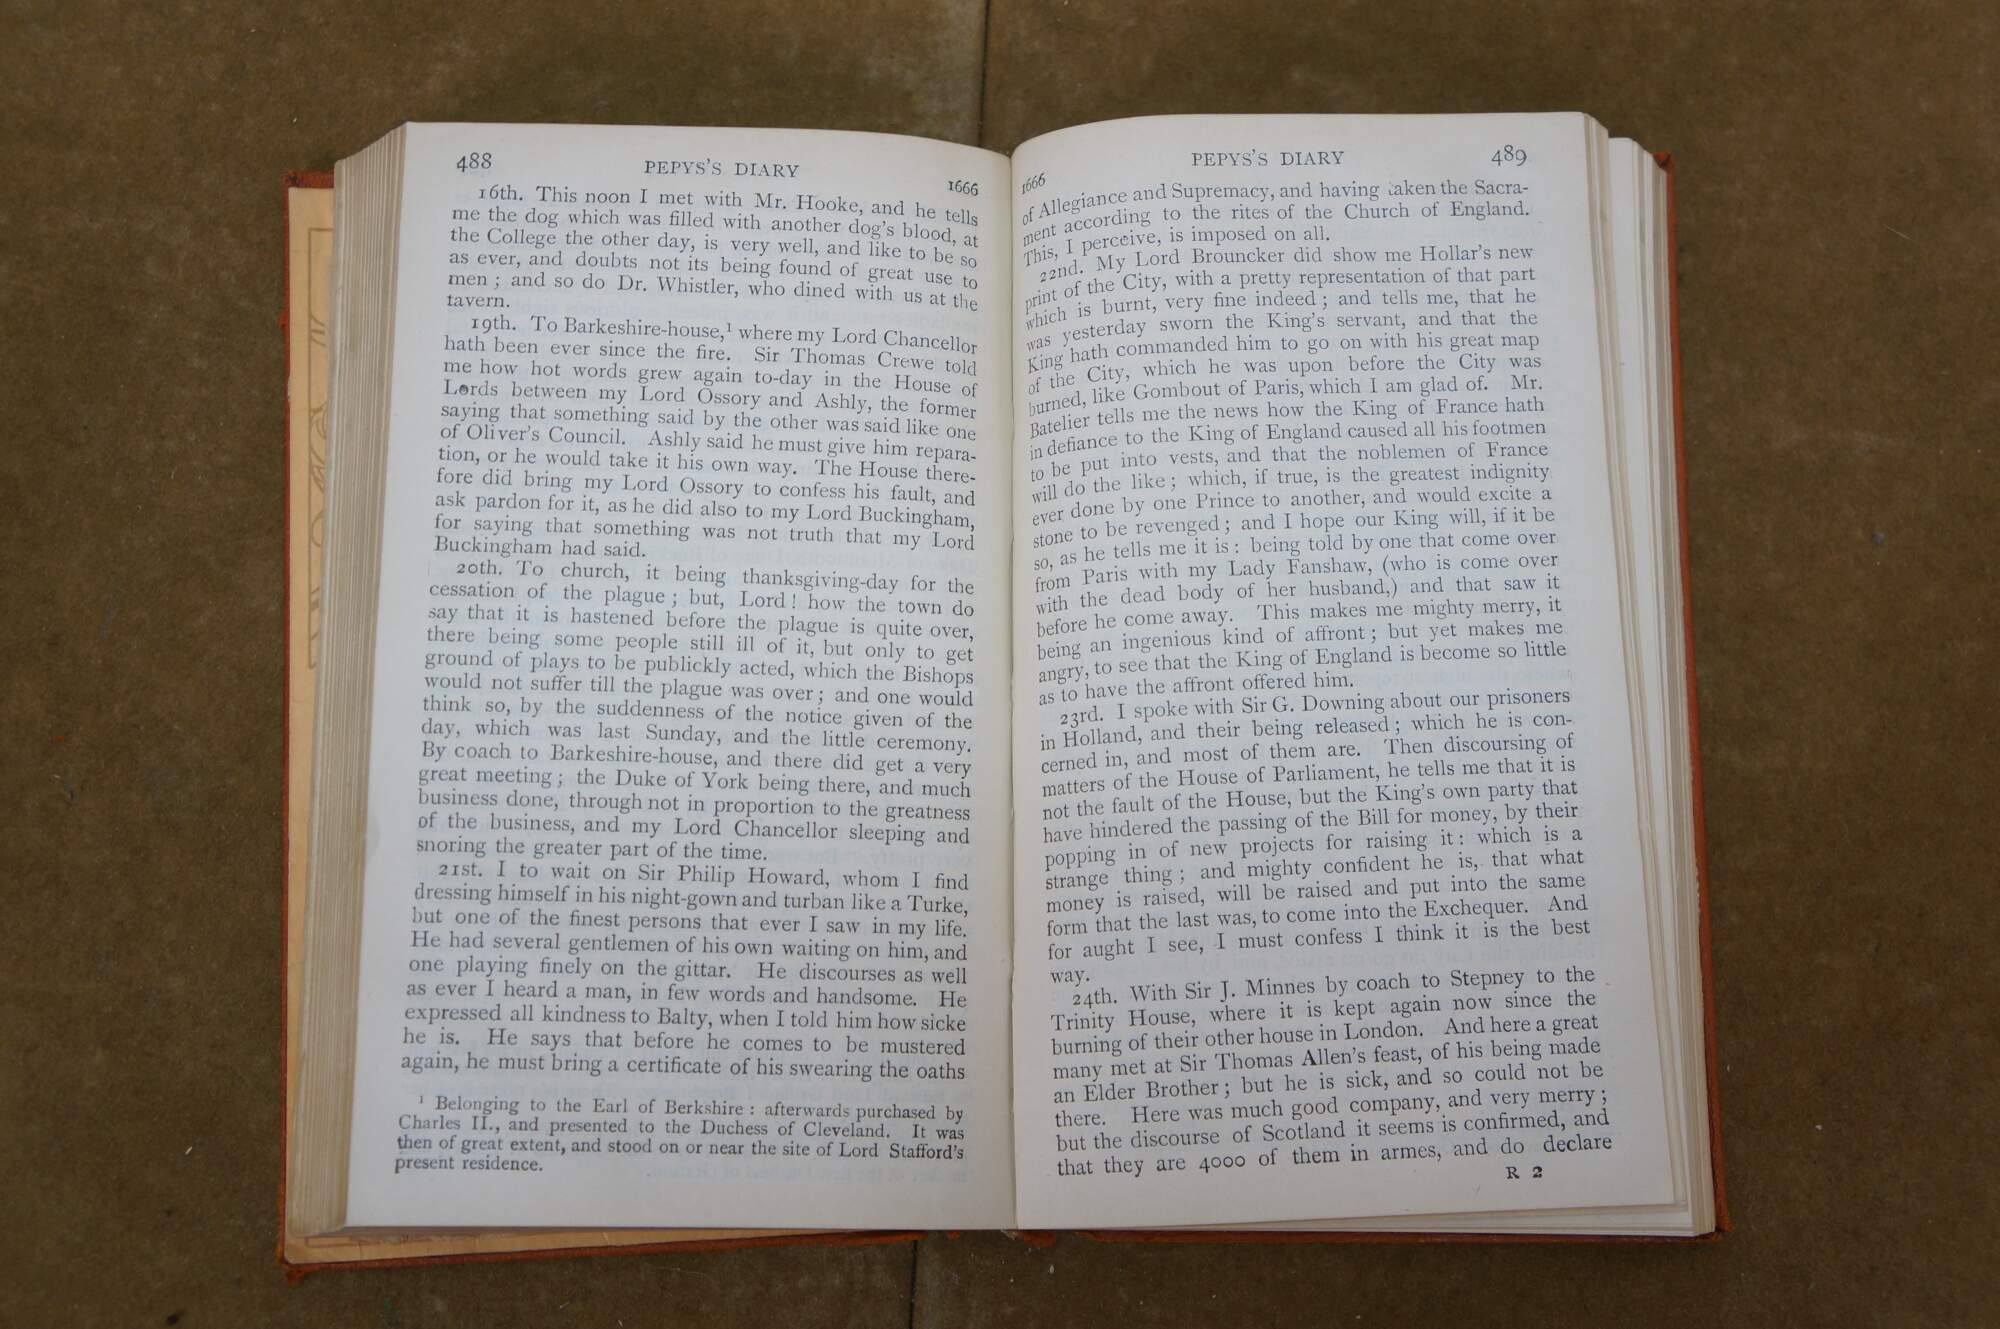 488
PEPYS'S DIARY
1666
16th. This noon I met with Mr. Hooke, and he tells
me the dog which was filled with another dog's blood, at
the College the other day, is very well, and like to be so
as ever, and doubts not its being found of great use to
men ; and so do Dr. Whistler, who dined with us at the
tavern.
19th. To Barkeshire-house,¹ where my Lord Chancellor
hath been ever since the fire. Sir Thomas Crewe told
me how hot words grew again to-day in the House of
Lords between my Lord Ossory and Ashly, the former
saying that something said by the other was said like one
of Oliver's Council. Ashly said he must give him repara-
tion, or he would take it his own way. The House there-
fore did bring my Lord Ossory to confess his fault, and
ask pardon for it, as he did also to my Lord Buckingham,
for saying that something was not truth that my Lord
Buckingham had said.
20th. To church, it being thanksgiving-day for the
cessation of the plague ; but, Lord ! how the town do
say that it is hastened before the plague is quite over,
there being some people still ill of it, but only to get
ground of plays to be publickly acted, which the Bishops
would not suffer till the plague was over ; and one would
think so, by the suddenness of the notice given of the
day, which was last Sunday, and the little ceremony.
By coach to Barkeshire-house, and there did get a very
great meeting ; the Duke of York being there, and much
business done, through not in proportion to the greatness
of the business, and my Lord Chancellor sleeping and
snoring the greater part of the time.
21st. I to wait on Sir Philip Howard, whom I find
dressing himself in his night-gown and turban like a Turke,
but one of the finest persons that ever I saw in my life.
He had several gentlemen of his own waiting on him, and
one playing finely on the gittar. He discourses as well
as ever I heard a man, in few words and handsome. He
expressed all kindness to Balty, when I told him how sicke
he is. He says that before he comes to be mustered
again, he must bring a certificate of his swearing the oaths
¹ Belonging to the Earl of Berkshire : afterwards purchased by
Charles II., and presented to the Duchess of Cleveland. It was
then of great extent, and stood on or near the site of Lord Stafford's
present residence.
1666
PEPYS'S DIARY
489
of Allegiance and Supremacy, and having taken the Sacra-
ment according to the rites of the Church of England.
This, I perceive, is imposed on all.
22nd. My Lord Brouncker did show me Hollar's new
print of the City, with a pretty representation of that part
which is burnt, very fine indeed ; and tells me, that he
was yesterday sworn the King's servant, and that the
King hath commanded him to go on with his great map
of the City, which he was upon before the City was
burned, like Gombout of Paris, which I am glad of. Mr.
Batelier tells me the news how the King of France hath
in defiance to the King of England caused all his footmen
to be put into vests, and that the noblemen of France
will do the like ; which, if true, is the greatest indignity
ever done by one Prince to another, and would excite a
stone to be revenged ; and I hope our King will, if it be
so, as he tells me it is : being told by one that come over
from Paris with my Lady Fanshaw, (who is come over
with the dead body of her husband,) and that saw it
before he come away. This makes me mighty merry, it
being an ingenious kind of affront ; but yet makes me
angry, to see that the King of England is become so little
as to have the affront offered him.
23rd. I spoke with Sir G. Downing about our prisoners
in Holland, and their being released ; which he is con-
cerned in, and most of them are. Then discoursing of
matters of the House of Parliament, he tells me that it is
not the fault of the House, but the King's own party that
have hindered the passing of the Bill for money, by their
popping in of new projects for raising it : which is a
strange thing ; and mighty confident he is, that what
money is raised, will be raised and put into the same
form that the last was, to come into the Exchequer. And
for aught I see, I must confess I think it is the best
way.
24th. With Sir J. Minnes by coach to Stepney to the
Trinity House, where it is kept again now since the
burning of their other house in London. And here a great
many met at Sir Thomas Allen's feast, of his being made
an Elder Brother ; but he is sick, and so could not be
there. Here was much good company, and very merry ;
but the discourse of Scotland it seems is confirmed, and
that they are 4000 of them in armes, and do declare
R 2